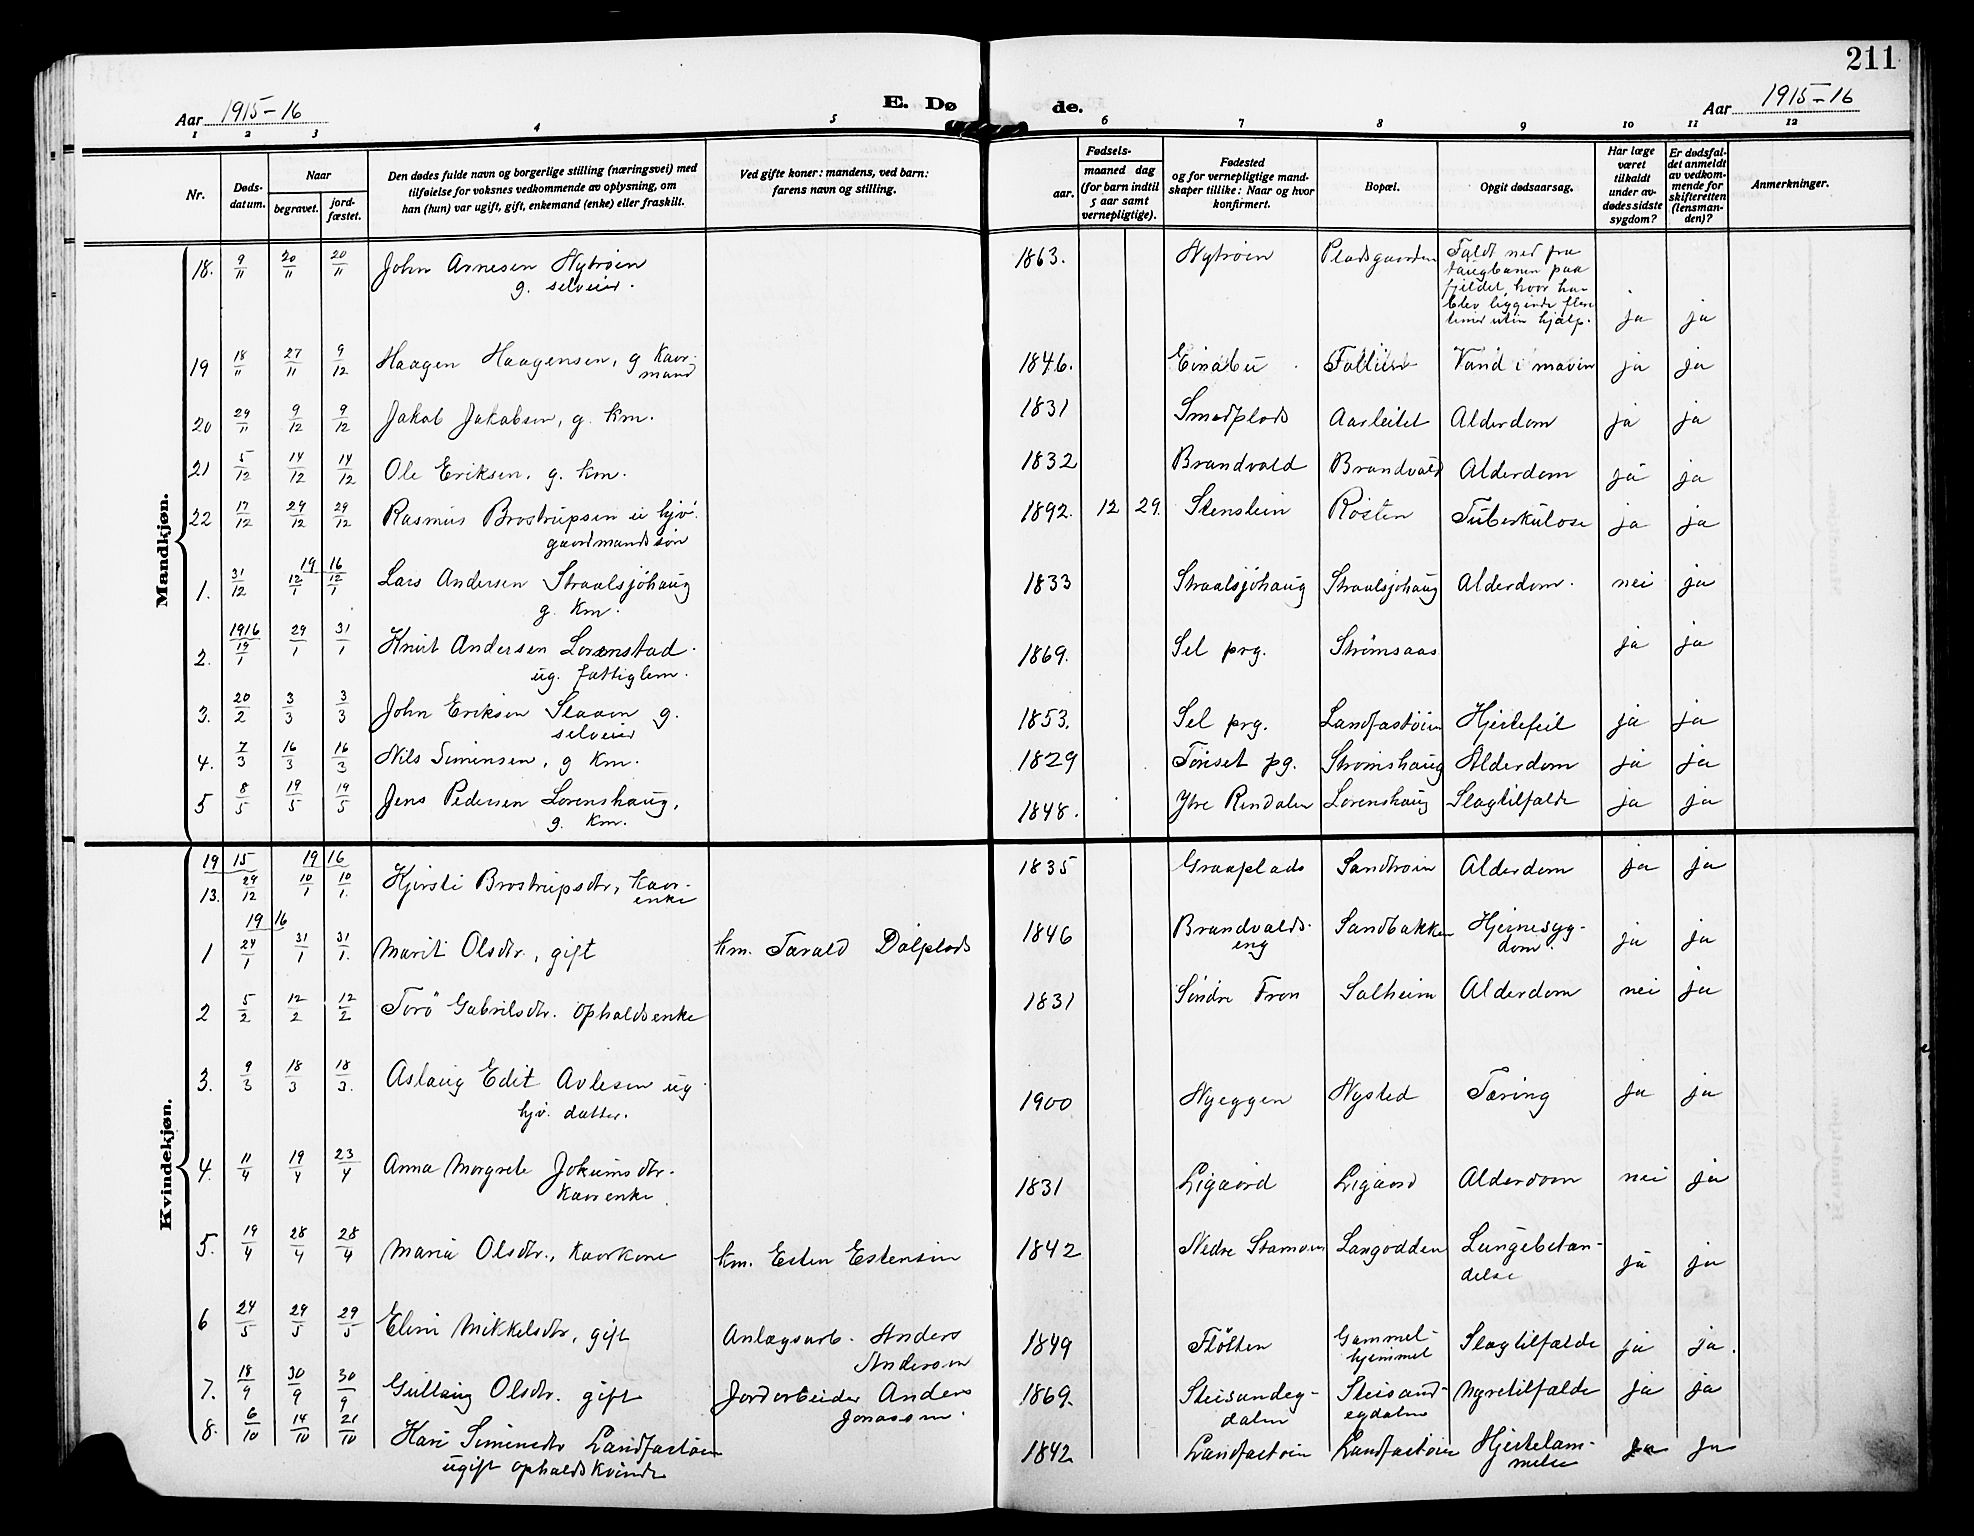 211
Aar 1915-16 E. Dø de. Aar 1915-16
1 2 3 4 5 6 7 8 9 10 11 12
Nr.
Døds-
datum.
Naar
begravet.
jord-
fæstet.
Den dødes fulde navn og borgerlige stilling (næringsvei) med
tilføielse for voksnes vedkommende av oplysning, om
han (hun) var ugift, gift, enkemand (enke) eller fraskilt.
Ved gifte koner: mandens, ved barn:
farens navn og stilling.
Fødsels-
aar.
maaned dag
(for barn indtil
5 aar samt
vernepligtige).
Fødested
og for vernepligtige mand-
skaper tillike: Naar og hvor
konfirmert.
Bopæl.
Opgit dødsaarsag.
Har læge
været
tilkaldt
under av-
dødes sidste
sygdom?
Er dødsfal-
det anmeldt
av vedkom-
mende for
skifteretten
(lensman-
den)?
Anmerkninger.
Mandkjøn.
18. 9/11 20/11 20/11 John Arnesen Nytrøen 1863. Nytrøen Pladsgaarden Faldt ned fra
g. selveier. taugbanen paa
fjeldet, hvor han
blev liggende flere
timer uten hjælp. ja ja
19 18/11 27/11 9/12 Haagen Haagensen, g kaar- 1846. Einabu Vand i maven ja ja
mand
20 29/11 9/12 9/12 Jakob Jakobsen, g. km. 1831 Smedplads Aarleitet Alderdom ja ja
21 5/12 14/12 14/12 Ole Eriksen, g. km. 1832 Brandvald Brandvald Alderdom ja ja
22 17/12 29/12 29/12 Rasmus Brostrupsen u hjv. 1892. 12 29. Stenstein Rosten Tuberkulose ja ja
gaardmandssøn
19 16
1. 31/12 12/1 12/1 Lars Andersen Straalsjøhaug 1833 Straalsjøhaug Straalsjøhaug Alderdom. nei ja
g. km.
1916
2. 19/1 29/1 31/1 Knut Andersen Lorenstad. 1869. Sel prg. Strømsaas ja ja
ug. fattiglem.
3. 20/2 3/3 3/3 John Eriksen Slaaen g. 1853. Sel prg. Landfastøien Hjertefeil ja ja
selveier
4. 7/3 16/3 16/3 Nils Simensen, g km. 1829 Tønset pg. Strømshaug Alderdom ja ja
5 8/5 19/5 19/5 Jens Pedersen Lorenshaug, 1848. Ytre Rendalen Lorenshaug Slagtilfælde ja ja
g. km.
Kvindekjøn.
19 15 19 16
13. 29/12 10/1 10/1. Kjersti Brostrupsdtr, kaar- 1835 Graaplads Sandtrøen Alderdom ja ja
enke
19 16
1 24/1 31/1 31/1. Marit Olsdtr., gift km. Tarald Dalplads 1846 Brandvalds- Sandbakken Hjernesyg- ja ja
eng dom.
2 5/2 12/2 12/2 Torø Gabrilsdtr. opholdsenke 1831 Søndre Fron Solheim Alderdom nei ja
3. 9/3 18/3 18/3. Aslaug Edit Avlesen ug. 1900 Nyeggen Nysted Tæring ja ja
hjv. datter.
4. 11/4 19/4 23/4 Anna Margrete Jokumsdtr. 1831 Ligaard Ligaard Alderdom nei ja
kaarenke.
5. 19/4 28/4 28/4 Maria Olsdtr., kaarkone km. Esten Estensen 1842 Nedre Stamoen Langodden Lungebetæn- ja ja
delse
6 24/5 29/5 29/5 Eline Mikkelsdtr, gift Anlægsarb. Anders 1849 Fløtten Gammel- Slagtilfælde ja ja.
Andersen hjemmet
7. 18/9 30/9 30/9 Gullaug Olsdtr. gift Jordarbeider Anders 1869. Steisandeg- Steisand- Nyretilfælde ja ja
Jonassen. dalen egdalen
8. 6/10 14/10 21/10 Kari Simensdtr Landfastøien 1842. Landfastøien Landfastøien Hjertelam- ja ja
ugift opholdskvinde melse